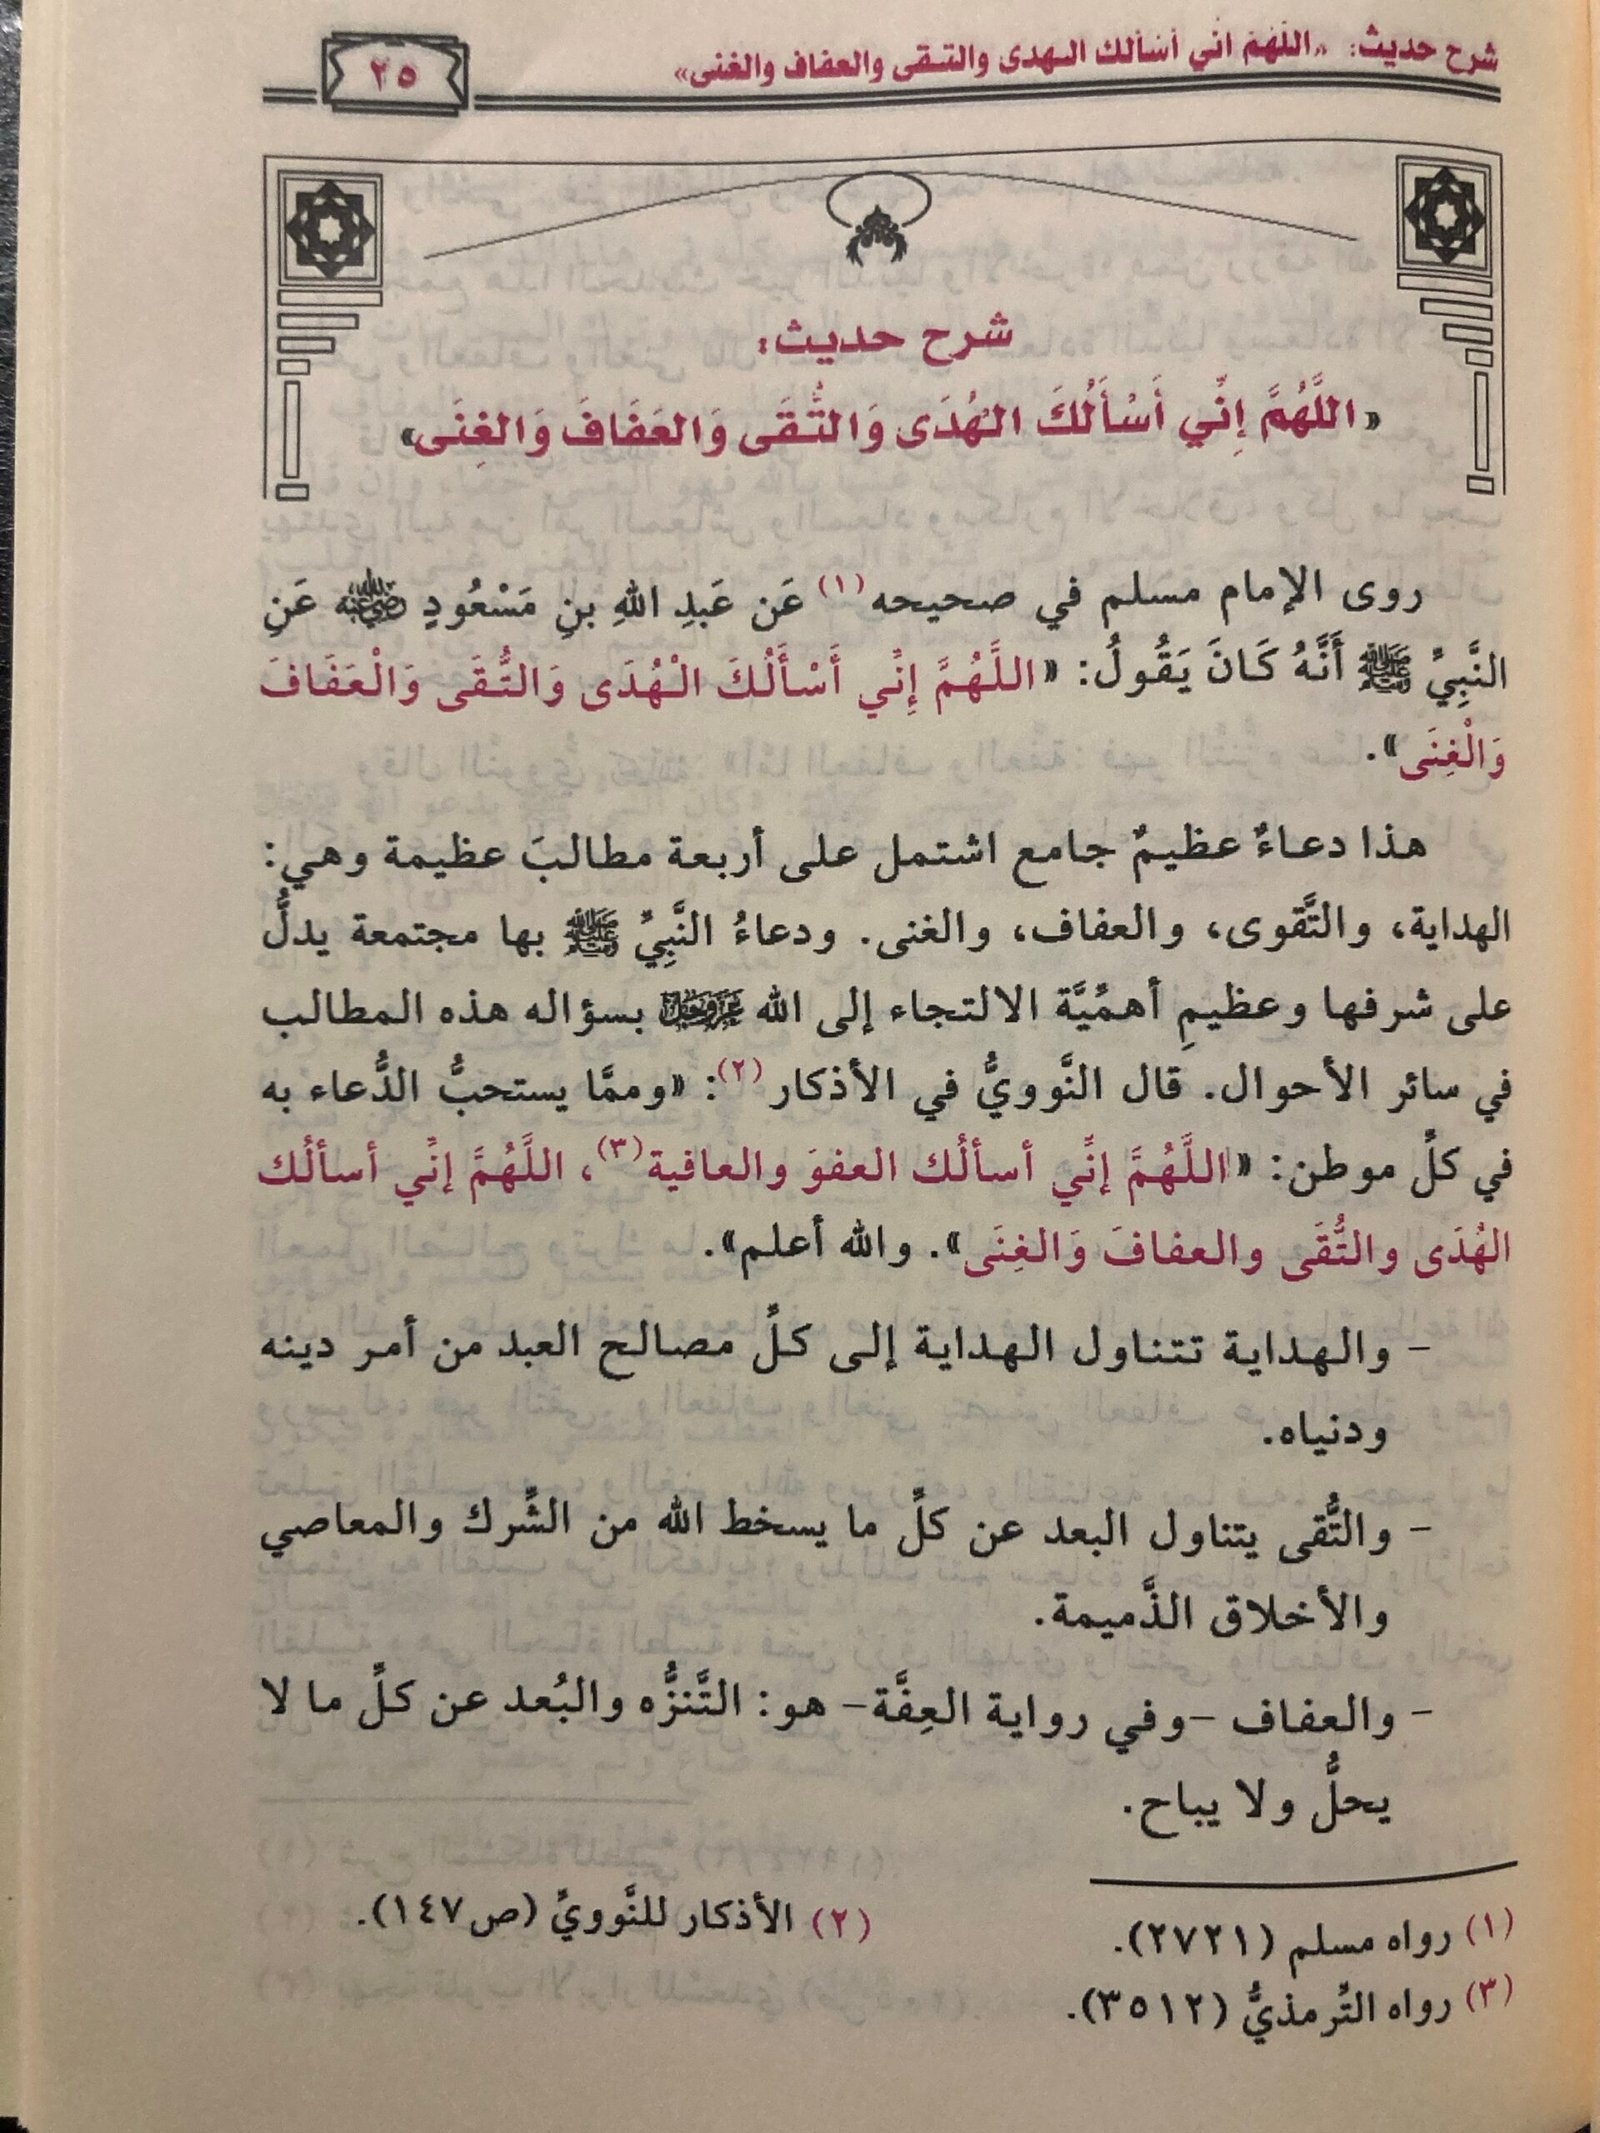 شرح حديث: «اللهم اني أسألك الهدى والتقى والعفاف والغنى»
٢٥
شرح حديث:
«اللَّهُمَّ إِنِّي أَسْأَلُكَ الهُدَى وَالتُّقَى وَالعَفَافَ وَالغِنَى»
روى الإمام مسلم في صحيحه(١) عَن عَبدِ اللهِ بنِ مَسْعُودٍ رضي الله عنه عَنِ
النَّبِيِّ ﷺ أَنَّهُ كَانَ يَقُولُ: «اللَّهُمَّ إِنِّي أَسْأَلُكَ الْهُدَى وَالتُّقَى وَالْعَفَافَ
وَالْغِنَى».
هذا دعاءٌ عظيمٌ جامع اشتمل على أربعة مطالبَ عظيمة وهي:
الهداية، والتَّقوى، والعفاف، والغنى. ودعاءُ النَّبِيِّ ﷺ بها مجتمعة يدلُّ
على شرفها وعظيمِ أهمِّيَّة الالتجاء إلى الله عَزَّوَجَلَّ بسؤاله هذه المطالب
في سائر الأحوال. قال النَّوويُّ في الأذكار(٢): «وممَّا يستحبُّ الدُّعاء به
في كلِّ موطن: «اللَّهُمَّ إنِّي أسألُك العفوَ والعافية(٣)، اللَّهُمَّ إنِّي أسألُك
الهُدَى والتُّقَى والعفافَ وَالغِنَى». والله أعلم».
- والهداية تتناول الهداية إلى كلِّ مصالح العبد من أمر دينه
ودنياه.
- والتُّقى يتناول البعد عن كلِّ ما يسخط الله من الشِّرك والمعاصي
والأخلاق الذَّميمة.
- والعفاف -وفي رواية العِفَّة- هو: التَّنزُّه والبُعد عن كلِّ ما لا
يحلُّ ولا يباح.
(١) رواه مسلم (٢٧٢١).
(٢) الأذكار للنَّوويِّ (ص١٤٧).
(٣) رواه التِّرمذيُّ (٣٥١٢).